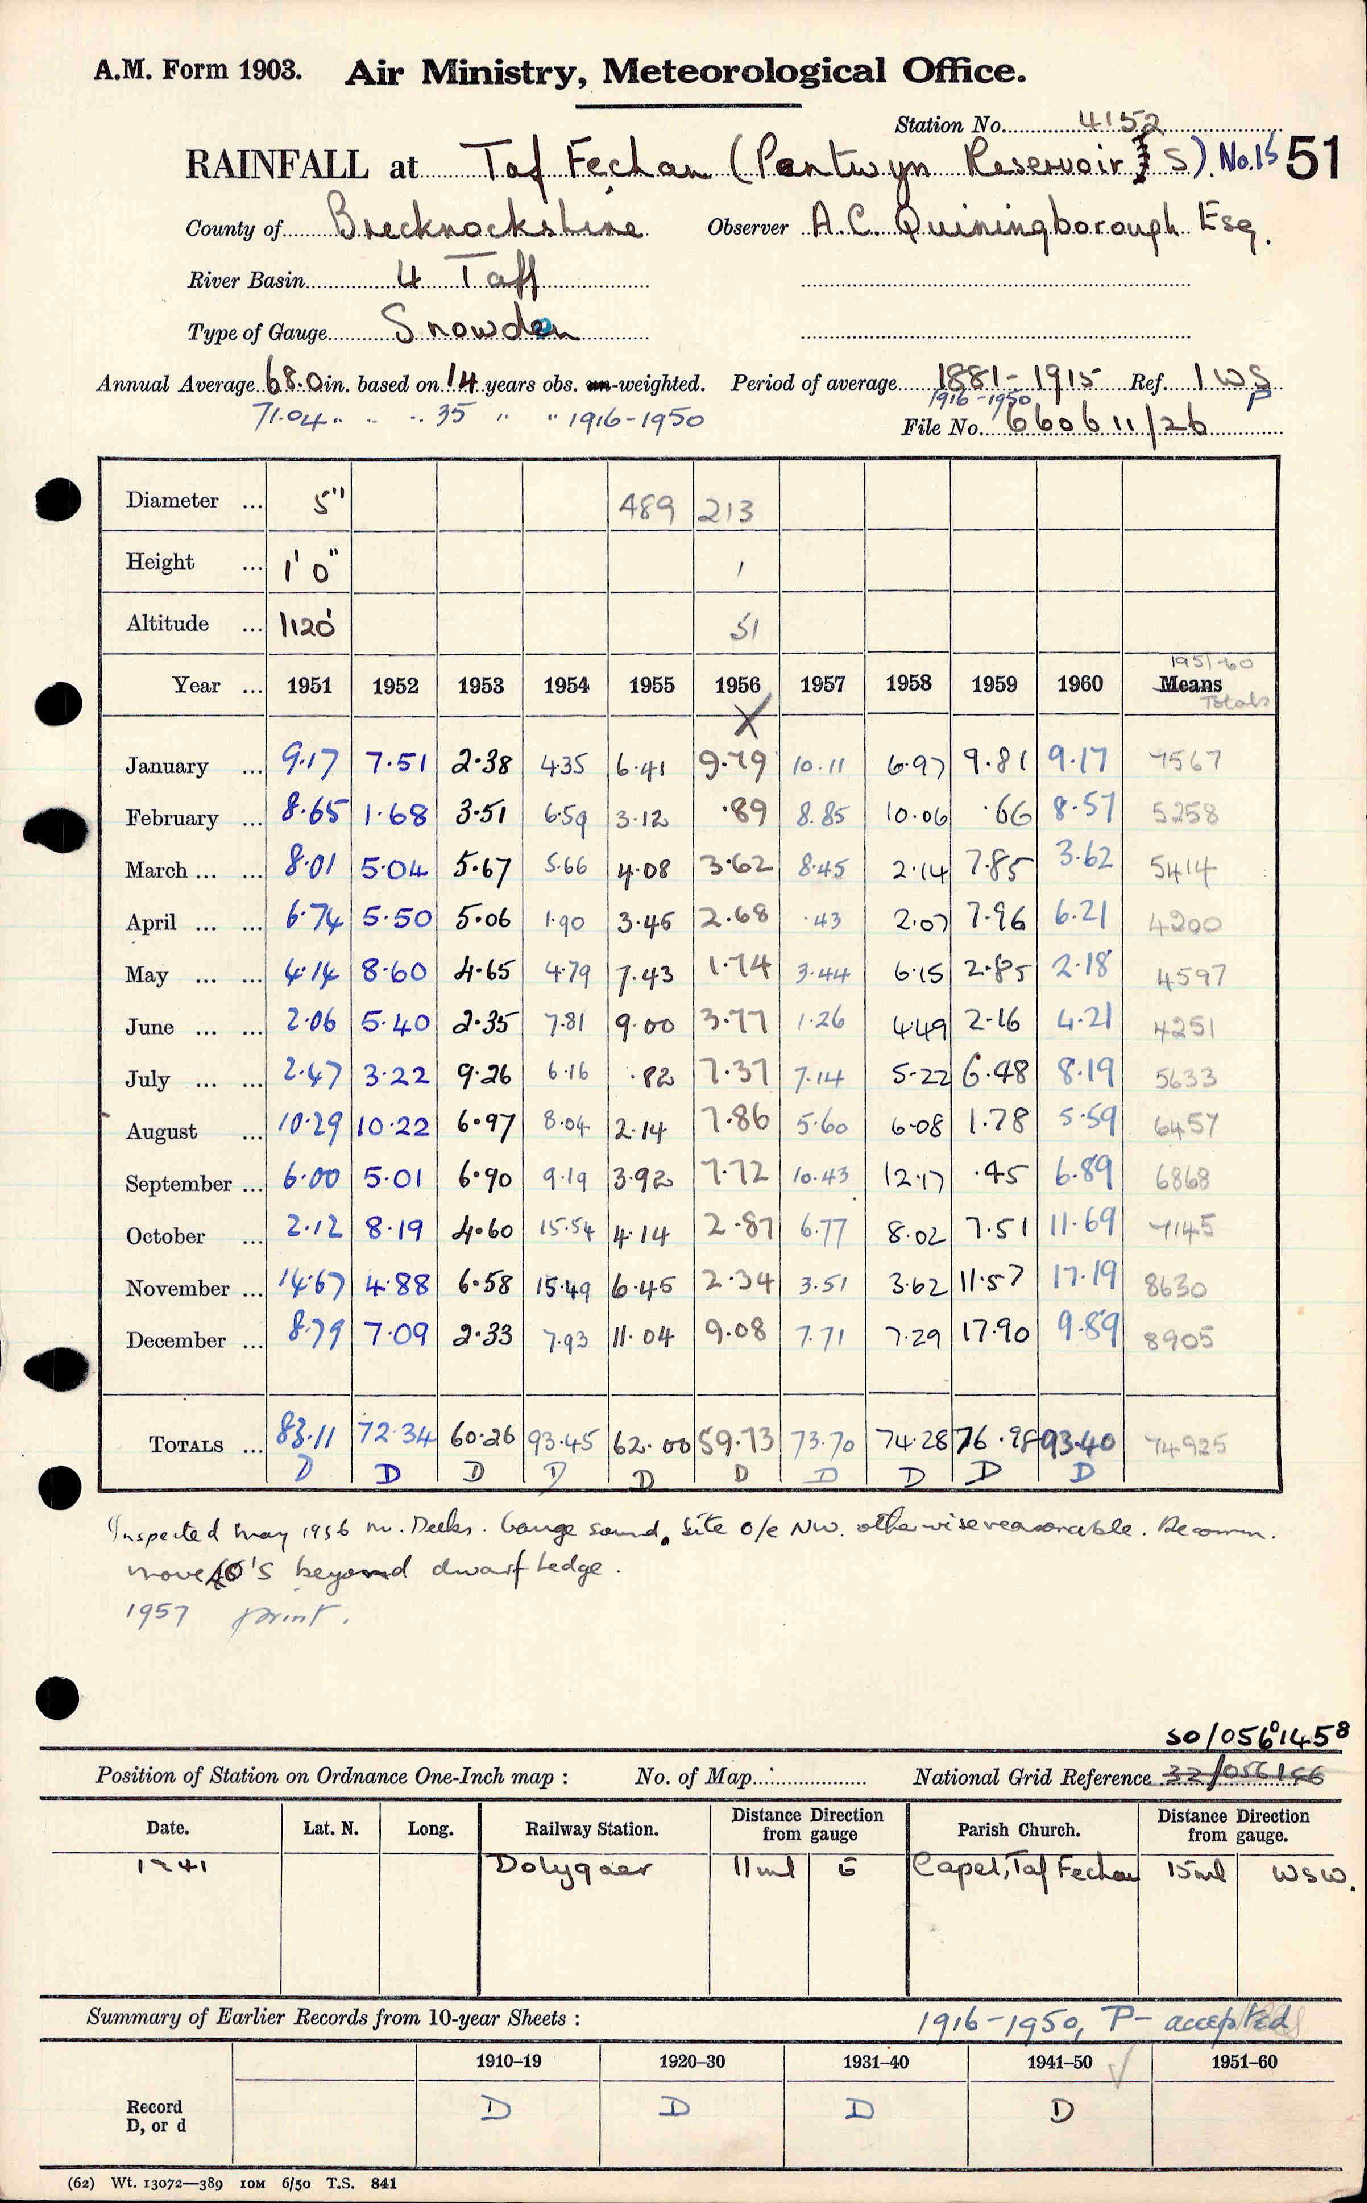 A.M. Form 1903. Air Ministry, Meteorological Office.
Station No. 4152
RAINFALL at Taf Fechan (Pentwyn Reservoir S). No.15 51
County of Brecknockshire Observer A.C. Quiningborough Esq.
River Basin 4 Taff
Type of Gauge Snowdon
Annual Average 68.0 in. based on 14 years obs. -weighted. Period of average 1881-1915 Ref. IWS
71.04 " " " 35 " " 1916-1950 1916-1950 P
File No. 660611/26
Diameter ... 5" 489 213
Height ... 1' 0" 1
Altitude ... 1120' 51
1951-60
Year ... 1951 1952 1953 1954 1955 1956 1957 1958 1959 1960 Means
X Totals
January ... 9.17 7.51 2.38 4.35 6.41 9.79 10.11 6.97 9.81 9.17 7567
February ... 8.65 1.68 3.51 6.59 3.12 .89 8.85 10.06 .66 8.57 5258
March ... ... 8.01 5.04 5.67 5.66 4.08 3.62 8.45 2.14 7.85 3.62 5414
April ... ... 6.74 5.50 5.06 1.90 3.45 2.68 .43 2.07 7.96 6.21 4200
May ... ... 4.14 8.60 4.65 4.79 7.43 1.74 3.44 6.15 2.85 2.18 4597
June ... ... 2.06 5.40 2.35 7.81 9.00 3.77 1.26 4.49 2.16 4.21 4251
July ... ... 2.47 3.22 9.26 6.16 .82 7.37 7.14 5.22 6.48 8.19 5633
August ... 10.29 10.22 6.97 8.04 2.14 7.86 5.60 6.08 1.78 5.59 6457
September ... 6.00 5.01 6.90 9.19 3.92 7.72 10.43 12.17 .45 6.89 6868
October ... 2.12 8.19 4.60 15.54 4.14 2.87 6.77 8.02 7.51 11.69 7145
November ... 14.67 4.88 6.58 15.49 6.45 2.34 3.51 3.62 11.57 17.19 8630
December ... 8.79 7.09 2.33 7.93 11.04 9.08 7.71 7.29 17.90 9.89 8905
TOTALS ... 83.11 72.34 60.26 93.45 62.00 59.73 73.70 74.28 76.98 93.40 74925
D D D D D D D D D D
Inspected May 1956 Mr. Deeks. Gauge sound, Site o/e NW. otherwise reasonable. Recomm.
move 40'S beyond dwarf hedge.
1957 print.
SO/056⁰145⁸
Position of Station on Ordnance One-Inch map : No. of Map National Grid Reference 32/056146
Date. Lat. N. Long. Railway Station. Distance Direction from gauge Parish Church. Distance Direction from gauge.
1941 Dolygaer 11ml E Capel, Taf Fechan 15ml WSW.
Summary of Earlier Records from 10-year Sheets : 1916-1950, P- accepted
1910–19 1920–30 1931–40 1941–50 1951–60
Record D, or d D D D D
(62) Wt. 13072—389 10M 6/50 T.S. 841